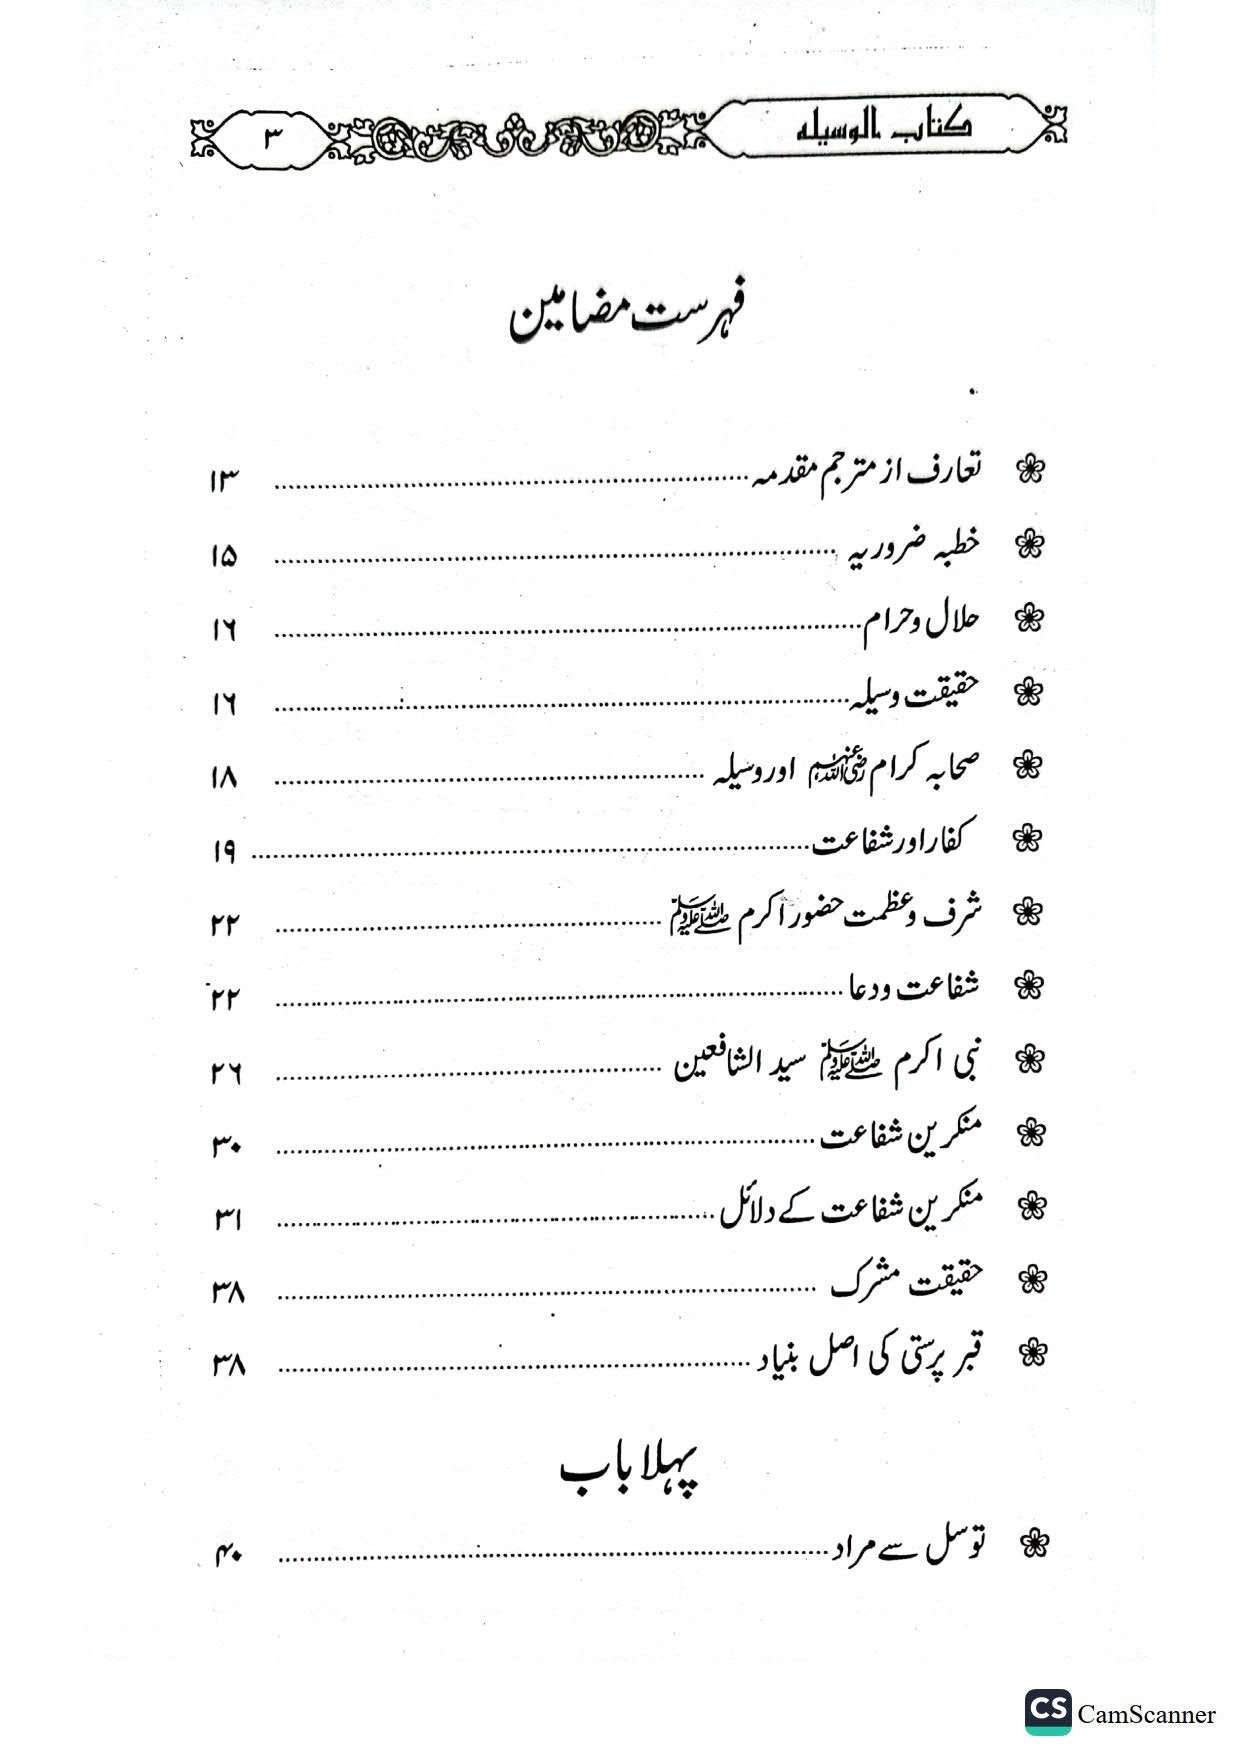 کتاب الوسیلہ ۳
فہرست مضامین
تعارف از مترجم مقدمہ ........ ۱۳
خطبہ ضروریہ ........ ۱۵
حلال و حرام ........ ۱۶
حقیقت وسیلہ ........ ۱۶
صحابہ کرام رضی اللہ عنہم اور وسیلہ ........ ۱۸
کفار اور شفاعت ........ ۱۹
شرف و عظمت حضور اکرم ﷺ ........ ۲۲
شفاعت و دعا ........ ۲۲
نبی اکرم ﷺ سید الشافعین ........ ۲۶
منکرین شفاعت ........ ۳۰
منکرین شفاعت کے دلائل ........ ۳۱
حقیقت مشرک ........ ۳۸
قبر پرستی کی اصل بنیاد ........ ۳۸
پہلا باب
توسل سے مراد ........ ۴۰
CS CamScanner